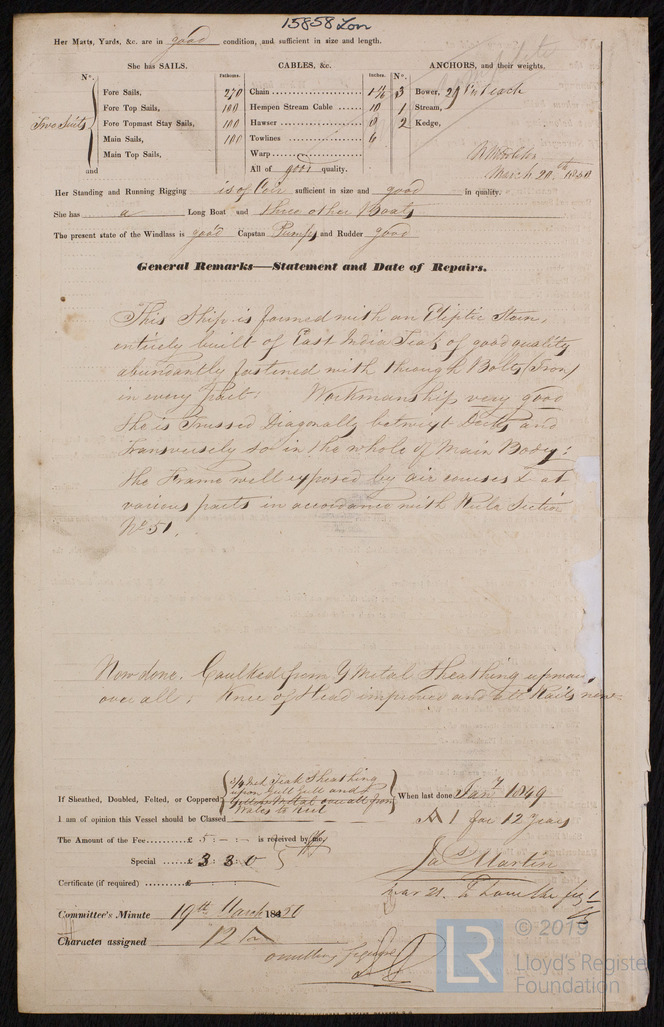 15858 Lon
Her Masts, Yards, &c. are in good condition, and sufficient in size and length.
She has SAILS.
CABLES, &c.
ANCHORS, and their weights.
No.
Fathoms.
Inches.
No.
Two Suits
and
Fore Sails,
Fore Top Sails,
Fore Topmast Stay Sails,
Main Sails,
Main Top Sails,
Chain 270
Hempen Stream Cable 100 10
Hawser 100 8
Towlines 100 6
Warp
All of good quality.
3 Bower, each
1 Stream,
2 Kedge,
March 20th 1850
Her Standing and Running Rigging is of Coir sufficient in size and good in quality.
She has a Long Boat and three other Boats
The present state of the Windlass is good Capstan Pumps and Rudder good
General Remarks—Statement and Date of Repairs.
This Ship is formed with an Eliptic Stern,
entirely built of East India Teak of good quality
abundantly fastened with through Bolts (Iron)
in every part. Workmanship very good
She is Trussed Diagonally betwixt Decks and
Transversely so in the whole of Main Body;
the Frame well exposed by air courses & at
various parts in accordance with Rule Section
No 51.
Now done. Caulked from Y Metal Sheathing upwards
over all. Knee of Head improved and all Rails new
If Sheathed, Doubled, Felted, or Coppered
Teak Sheathing
upon and
Yellow Metal over all from
Wales to Keel
When last done Jany 1849
I am of opinion this Vessel should be Classed A 1 for 12 Years
The Amount of the Fee £ 5 : – : – is received by me,
Special £ 3 : 3 : 0
Jas Martin
Certificate (if required) £
Mar 21.
Committee's Minute 19th March 1850
Character assigned 12
omitting
© 2019
LR
Lloyd's Register
Foundation